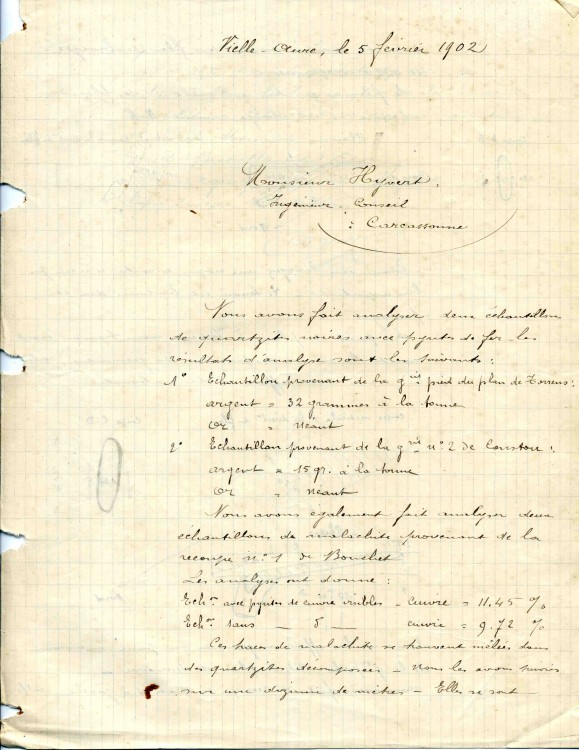 Vielle-Aure, le 5 février 1902
Monsieur Hyvert.
Ingénieur-Conseil
à Carcassonne
Nous avons fait analyser deux échantillons
de quartzites noires avec pyrites de fer les
résultats d'analyse sont les suivants :
1° Echantillon provenant de la grie pied du plan de Torrens :
argent = 32 grammes à la tonne
or „ néant
2° Echantillon provenant de la grie n° 2 de Couston :
argent = 15 gr. à la tonne
or „ néant
Nous avons également fait analyser deux
échantillons de malachite provenant de la
recoupe n° 1 de Bouchet
Les analyses ont donné :
Echon avec pyrites de cuivre visibles - cuivre = 11.45 %
Echon sans — d° — cuivre = 9.72 %
Ces traces de malachite se trouvent mêlées dans
des quartzites décomposées - Nous les avons suivies
sur une dizaine de mètres - Elles se sont